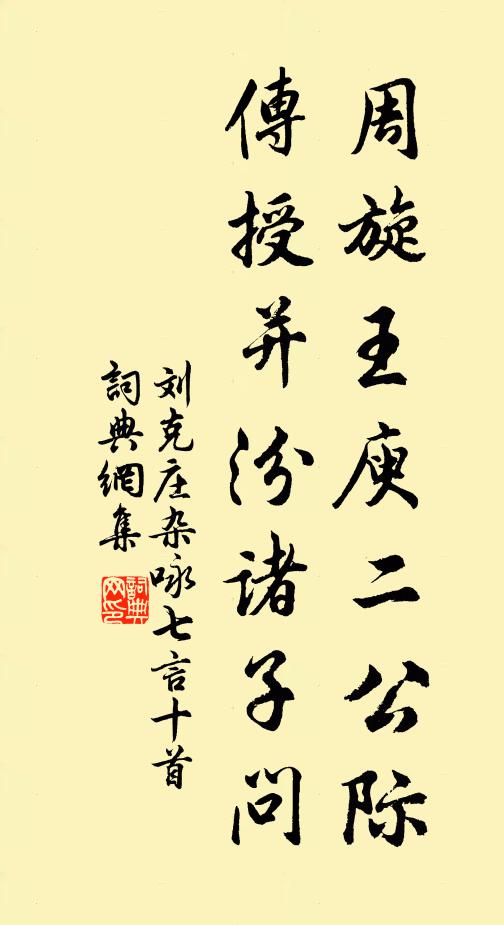 周旋王庾二公际
傳授并汾諸子問
刘克庄杂咏七言十首
詞典網集
詞典网印